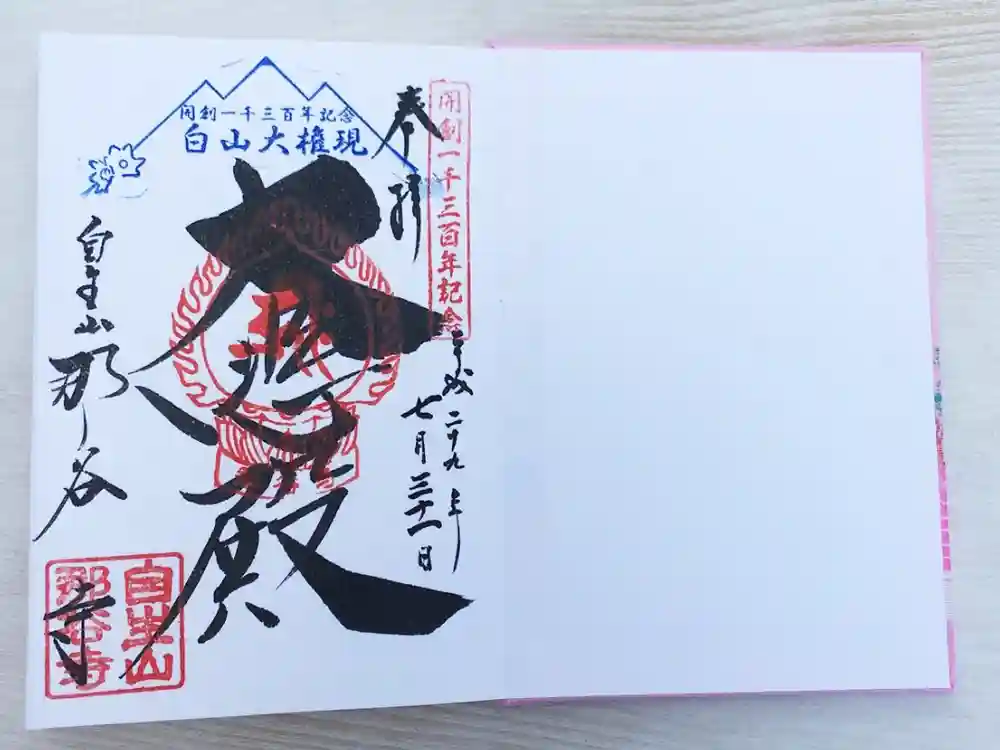 開創一千三百年記念
白山大権現
開創一千三百年記念
奉拝
平成二十九年
七月三十一日
大悲殿
自生山
那谷寺
自生山
那谷寺